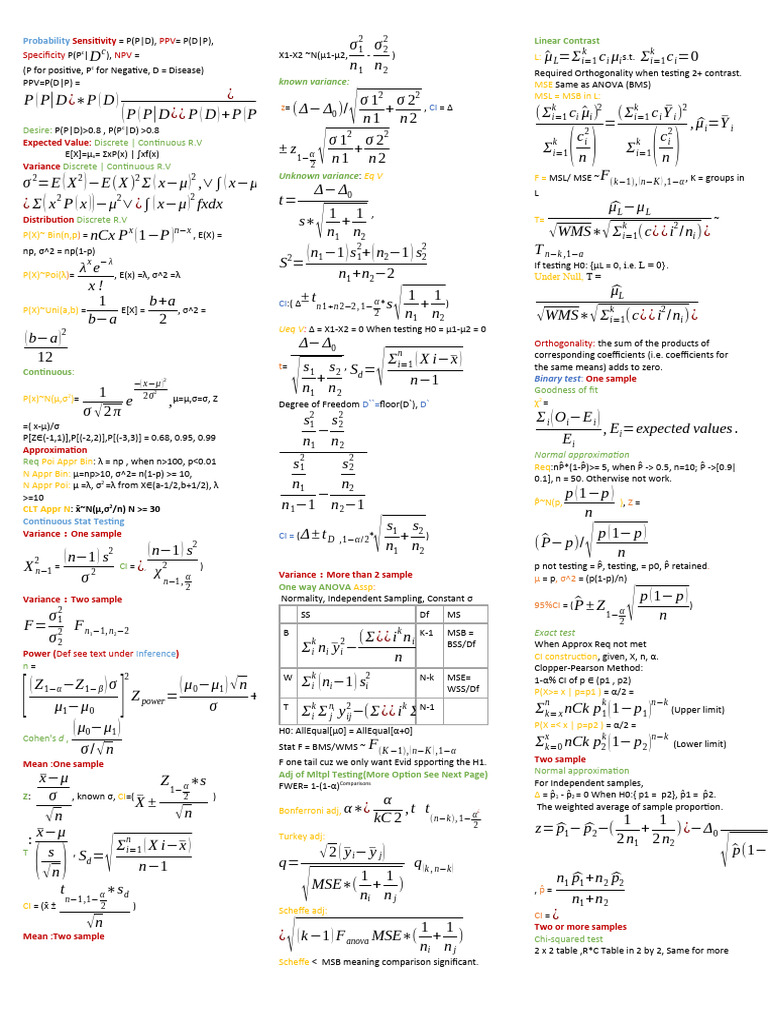 Probability Sensitivity = P(P|D), PPV= P(D|P),
Specificity P(Pᶜ|Dᶜ), NPV =
(P for positive, Pᶜ for Negative, D = Disease)
PPV=P(D|P) =
P(P|D¿∗P(D) ¿/(P(P|D¿¿P(D)+P(P
Desire: P(P|D)>0.8 , P(Pᶜ|D) >0.8
Expected Value: Discrete | Continuous R.V
E[X]=μₓ= ΣxP(x) | ∫xf(x)
Variance Discrete | Continuous R.V
σ²=E(X²)−E(X)²Σ(x−μ)²,∨∫(x−μ
¿Σ(x²P(x))−μ²∨¿∫(x−μ)²fxdx
Distribution Discrete R.V
P(X)~ Bin(n,p) = nCx Pˣ(1−P)ⁿ⁻ˣ , E(X) =
np, σ^2 = np(1-p)
P(X)~Poi(λ)= λˣe^−λ / x! , E(x) =λ, σ^2 =λ
P(X)~Uni(a,b) = 1/(b−a) E[X] = (b+a)/2 , σ^2 =
(b−a)²/12
Continuous:
P(x)~N(μ,σ²)= 1/(σ√2π) e^(−(x−μ)²/2σ²) ,μ=μ,σ=σ, Z
=( x-μ)/σ
P[Z∈(-1,1)],P[(-2,2)],P[(-3,3)] = 0.68, 0.95, 0.99
Approximation
Req Poi Appr Bin: λ = np , when n>100, p<0.01
N Appr Bin: μ=np>10, σ^2= n(1-p) >= 10,
N Appr Poi: μ =λ, σ² =λ from X∈(a-1/2,b+1/2), λ
>=10
CLT Appr N: x̄~N(μ,σ²/n) N >= 30
Continuous Stat Testing
Variance : One sample
X²ₙ₋₁ = (n−1)s²/σ² CI = ¿ (n−1)s²/χ²_(n−1,α/2) )
Variance : Two sample
F= σ₁²/σ₂² F_(n₁−1,n₂−2)
Power (Def see text under Inference)
n =
[(Z_(1−α)−Z_(1−β))σ/(μ₁−μ₀)]² Z_power= (μ₀−μ₁)√n/σ +
Cohen's d , (μ₀−μ₁)/(σ/√n)
Mean :One sample
Z: (x̄−μ)/(σ/√n) , known σ, CI=( X̄± Z_(1−α/2)*s/√n )
T : (x̄−μ)/(s/√n) , S_d=√(Σᵢ₌₁ⁿ(Xi−x̄)/(n−1))
CI = (x̄ ± t_(n−1,1−α/2)*s_d/√n )
Mean :Two sample
X1-X2 ~N(μ1-μ2, σ₁²/n₁ - σ₂²/n₂ )
known variance:
z= (Δ−Δ₀)/√(σ1²/n1+σ2²/n2) , CI = Δ
± z_(1−α/2)√(σ1²/n1+σ2²/n2)
Unknown variance: Eq V
t= (Δ−Δ₀)/(s∗√(1/n₁+1/n₂)) ,
S²= ((n₁−1)s₁²+(n₂−1)s₂²)/(n₁+n₂−2)
CI:( Δ ± t_(n1+n2−2,1−α/2)*s√(1/n₁+1/n₂))
Ueq V: Δ = X1-X2 = 0 When testing H0 = μ1-μ2 = 0
t= (Δ−Δ₀)/√(s₁/n₁+s₂/n₂) , S_d=√(Σᵢ₌₁ⁿ(Xi−x̄)/(n−1))
Degree of Freedom D``=floor(D`), D`
(s₁²/n₁−s₂²/n₂)/((s₁²/n₁)/(n₁−1)−(s₂²/n₂)/(n₂−1))
CI = (Δ±t_(D ,1−α/2)*√(s₁/n₁+s₂/n₂))
Variance : More than 2 sample
One way ANOVA Assp:
Normality, Independent Sampling, Constant σ
SS Df MS
B Σᵢᵏnᵢȳᵢ²−(Σ¿¿iᵏnᵢ/n K-1 MSB = BSS/Df
W Σᵢᵏ(nᵢ−1)sᵢ² N-k MSE= WSS/Df
T ΣᵢᵏΣⱼⁿyᵢⱼ²−(Σ¿¿iᵏΣ N-1
H0: AllEqual[μ0] = AllEqual[α+0]
Stat F = BMS/WMS ~ F_((K−1),(n−K),1−α)
F one tail cuz we only want Evid spporting the H1.
Adj of Mltpl Testing(More Option See Next Page)
FWER= 1-(1-α)^Comparisons
Bonferroni adj, α∗¿ α/kC2 , t t_((n−k),1−α/2)
Turkey adj:
q= √2(ȳᵢ−ȳⱼ)/√(MSE∗(1/nᵢ+1/nⱼ)) q_(k,n−k)
Scheffe adj:
¿√((k−1)F_anova MSE∗(1/nᵢ+1/nⱼ)
Scheffe < MSB meaning comparison significant.
Linear Contrast
L: μ̂_L=Σᵢ₌₁ᵏcᵢμᵢs.t. Σᵢ₌₁ᵏcᵢ=0
Required Orthogonality when testing 2+ contrast.
MSE Same as ANOVA (BMS)
MSL = MSB in L:
(Σᵢ₌₁ᵏcᵢμ̂ᵢ)²/Σᵢ₌₁ᵏ(cᵢ²/n) = (Σᵢ₌₁ᵏcᵢȲᵢ)²/Σᵢ₌₁ᵏ(cᵢ²/n) , μ̂ᵢ=Ȳᵢ
F = MSL/ MSE ~F_((k−1),(n−K),1−α), K = groups in
L
T= (μ̂_L−μ_L)/(√WMS∗√(Σᵢ₌₁ᵏ(c¿¿i²/nᵢ)¿ ~
T_(n−k,1−a)
If testing H0: {μL = 0, i.e. L = 0}.
Under Null, T =
μ̂_L/(√WMS∗√(Σᵢ₌₁ᵏ(c¿¿i²/nᵢ)¿
Orthogonality: the sum of the products of
corresponding coefficients (i.e. coefficients for
the same means) adds to zero.
Binary test: One sample
Goodness of fit
χ² =
Σᵢ(Oᵢ−Eᵢ)/Eᵢ , Eᵢ=expected values .
Normal approximation
Req:nP̂*(1-P̂)>= 5, when P̂ -> 0.5, n=10; P̂ ->[0.9|
0.1], n = 50. Otherwise not work.
P̂~N(p, p(1−p)/n ), Z =
(P̂−p)/√(p(1−p)/n)
p not testing = P̂, testing, = p0, P̂ retained.
μ = p, σ^2 = (p(1-p)/n)
95%CI = (P̂±Z_(1−α/2)√(p(1−p)/n))
Exact test
When Approx Req not met
CI construction, given, X, n, α.
Clopper-Pearson Method:
1-α% CI of p ∈ (p1 , p2)
P(X>= x | p=p1 ) = α/2 =
Σₖ₌ₓⁿ nCk p₁ᵏ(1−p₁)ⁿ⁻ᵏ (Upper limit)
P(X =< x | p=p2 ) = α/2 =
Σₖ₌₀ˣ nCk p₂ᵏ(1−p₂)ⁿ⁻ᵏ (Lower limit)
Two sample
Normal approximation
For Independent samples,
Δ = p̂₁ - p̂₂ = 0 When H0:{ p1 = p2}, p̂1 = p̂2.
The weighted average of sample proportion.
z=p̂₁−p̂₂−(1/2n₁+1/2n₂)¿−Δ₀ /√(p̂(1−
, p̂ = (n₁p̂₁+n₂p̂₂)/(n₁+n₂)
CI = ¿
Two or more samples
Chi-squared test
2 x 2 table ,R*C Table in 2 by 2, Same for more